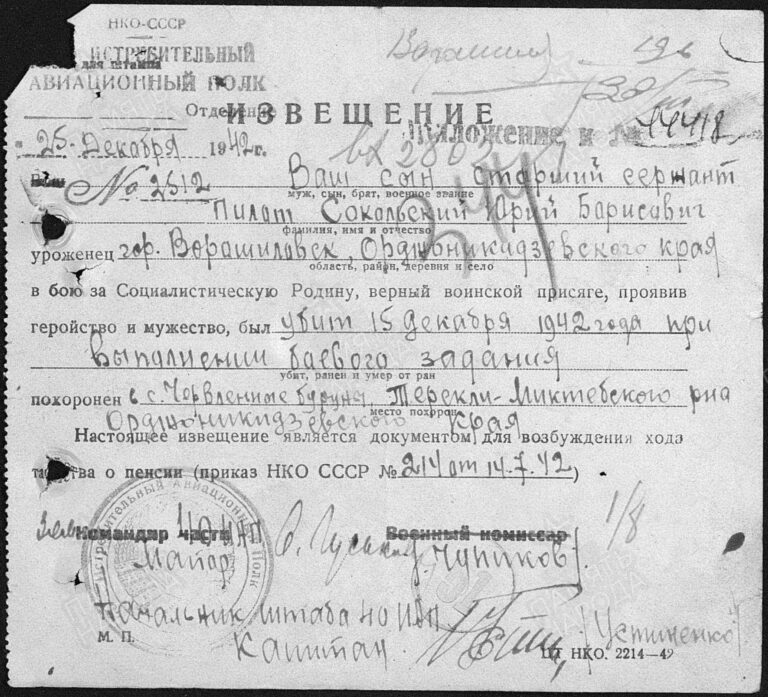 НКО-СССР
ИСТРЕБИТЕЛЬНЫЙ
для штампа
АВИАЦИОННЫЙ ПОЛК
Отделение
ИЗВЕЩЕНИЕ
Приложение к №
25 Декабря 1942 г.
Вх 2802
№ 2512 Ваш сын старший сержант
муж, сын, брат, военное звание
Пилот Сокольский Юрий Барисавич
фамилия, имя и отчество
уроженец гор. Ворашилавск, Орджоникидзевского края
область, район, деревня и село
в бою за Социалистическую Родину, верный воинской присяге, проявив
геройство и мужество, был убит 15 декабря 1942 года при
выполнении боевого задания
убит, ранен и умер от ран
похоронен в с. Червленные буруны, Терекли-Миктебского рна
место похорон
Орджоникидзевского края
Настоящее извещение является документом для возбуждения хода
тайства о пенсии (приказ НКО СССР № 214 от 14.7.42)
1/8
Зам Командир части 40 ИАП Военный комиссар
Майор Чупиков
Начальник штаба 40 ИАП
Капитан /Устиненко/
М. П.
ЦТ НКО. 2214—42
Истребительный Авиационный Полк